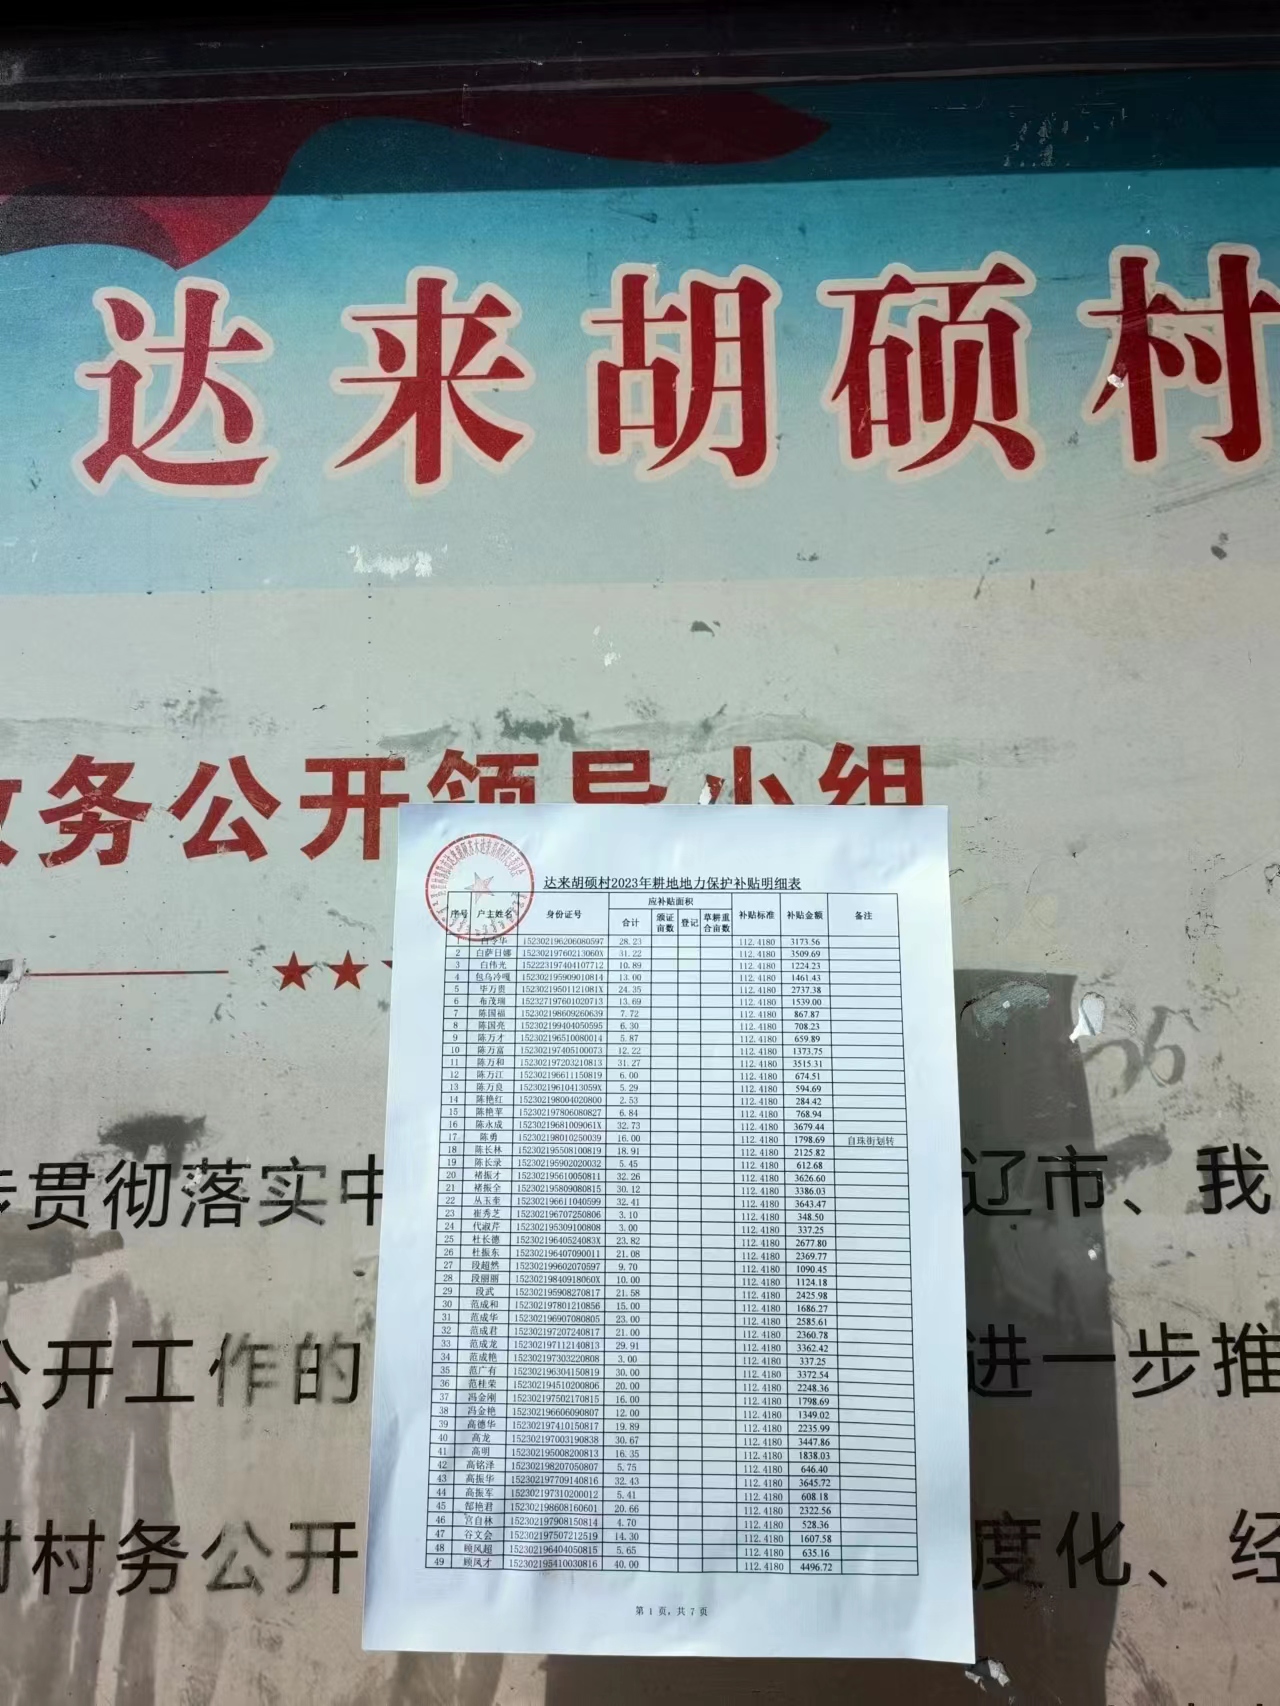 达来胡硕村
务公开领导小组
达来胡硕村2023年耕地地力保护补贴明细表
序号 户主姓名 身份证号 应补贴面积 补贴标准 补贴金额 备注
合计 颁证亩数 登记 草耕重合亩数
1 白令华 152302196206080597 28.23 112.4180 3173.56
2 白萨日娜 15230219760213060X 31.22 112.4180 3509.69
3 白伟光 152223197404107712 10.89 112.4180 1224.23
4 包乌冷嘎 152302195909010814 13.00 112.4180 1461.43
5 毕万贵 15230219501121081X 24.35 112.4180 2737.38
6 布茂瑞 152327197601020713 13.69 112.4180 1539.00
7 陈国福 152302198609260639 7.72 112.4180 867.87
8 陈国亮 152302199404050595 6.30 112.4180 708.23
9 陈万才 152302196510080014 5.87 112.4180 659.89
10 陈万富 152302197405100073 12.22 112.4180 1373.75
11 陈万和 152302197203210813 31.27 112.4180 3515.31
12 陈万江 152302196611150819 6.00 112.4180 674.51
13 陈万良 15230219610413059X 5.29 112.4180 594.69
14 陈艳红 152302198004020800 2.53 112.4180 284.42
15 陈艳苹 152302197806080827 6.84 112.4180 768.94
16 陈永成 15230219681009061X 32.73 112.4180 3679.44
17 陈勇 152302198010250039 16.00 112.4180 1798.69 自珠街划转
18 陈长林 152302195508100819 18.91 112.4180 2125.82
19 陈长录 152302195902020032 5.45 112.4180 612.68
20 褚振才 152302195610050811 32.26 112.4180 3626.60
21 褚振全 152302195809080815 30.12 112.4180 3386.03
22 丛玉奎 152302196611040599 32.41 112.4180 3643.47
23 崔秀芝 152302196707250806 3.10 112.4180 348.50
24 代淑芹 152302195309100808 3.00 112.4180 337.25
25 杜长德 15230219640524083X 23.82 112.4180 2677.80
26 杜振东 152302196407090011 21.08 112.4180 2369.77
27 段超然 152302199602070597 9.70 112.4180 1090.45
28 段丽丽 15230219840918060X 10.00 112.4180 1124.18
29 段武 152302195908270817 21.58 112.4180 2425.98
30 范成和 152302197801210856 15.00 112.4180 1686.27
31 范成华 152302196907080805 23.00 112.4180 2585.61
32 范成君 152302197207240817 21.00 112.4180 2360.78
33 范成龙 152302197112140813 29.91 112.4180 3362.42
34 范成艳 152302197303220808 3.00 112.4180 337.25
35 范广有 152302196304150819 30.00 112.4180 3372.54
36 范桂荣 152302194510200806 20.00 112.4180 2248.36
37 冯金刚 152302197502170815 16.00 112.4180 1798.69
38 冯金艳 152302196606090807 12.00 112.4180 1349.02
39 高德华 152302197410150817 19.89 112.4180 2235.99
40 高龙 152302197003190838 30.67 112.4180 3447.86
41 高明 152302195008200813 16.35 112.4180 1838.03
42 高铭泽 152302198207050807 5.75 112.4180 646.40
43 高振华 152302197709140816 32.43 112.4180 3645.72
44 高振军 152302197310200012 5.41 112.4180 608.18
45 郜艳君 152302198608160601 20.66 112.4180 2322.56
46 宫自林 152302197908150814 4.70 112.4180 528.36
47 谷文会 152302197507212519 14.30 112.4180 1607.58
48 顾凤超 152302196404050815 5.65 112.4180 635.16
49 顾凤才 152302195410030816 40.00 112.4180 4496.72
第 1 页，共 7 页
贯彻落实中 辽市、我
公开工作的 进一步推
村村务公开 度化、经